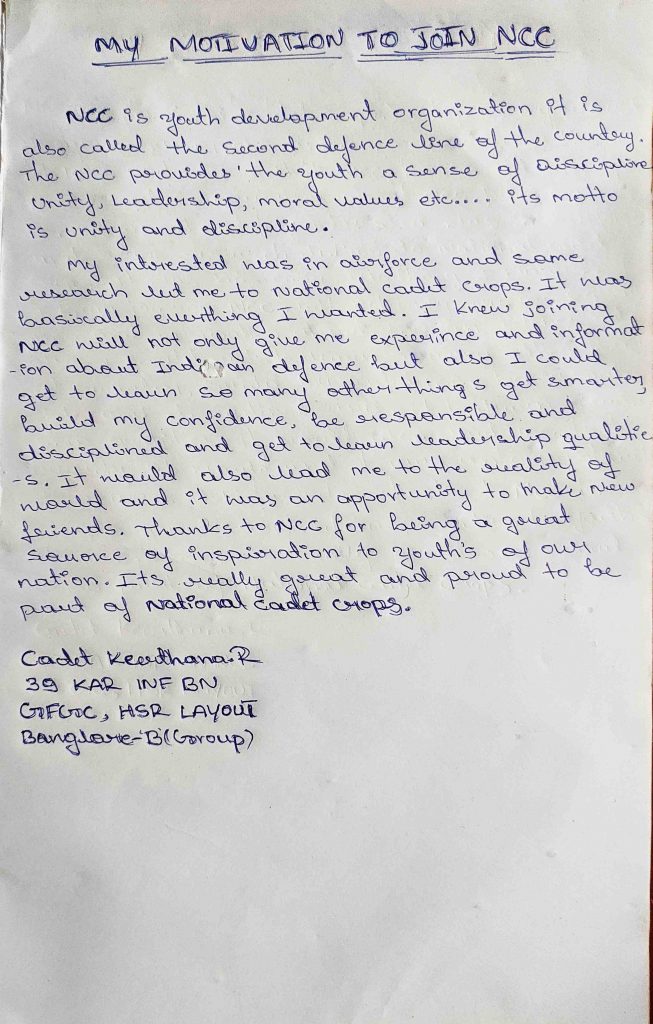 MY MOTIVATION TO JOIN NCC
NCC is youth development organization it is
also called the second defence line of the country.
The NCC provides the youth a sense of Discipline
unity, Leadership, moral values etc.... its motto
is unity and discipline.
My intrested was in airforce and some
research led me to National cadet crops. It was
basically everthing I wanted. I knew joining
NCC will not only give me experince and informat
-ion about Indian defence but also I could
get to learn so many other things get smarter,
build my confidence, be responsible and
disciplined and get to learn leadership qualitie
-s. It would also lead me to the reality of
world and it was an opportunity to make new
friends. Thanks to NCC for being a great
source of inspiration to youth's of our
nation. Its really great and proud to be
part of National cadet crops.
Cadet Keerthana.R
39 KAR INF BN
GFGC, HSR LAYOUT
Banglore-'B'(Group)